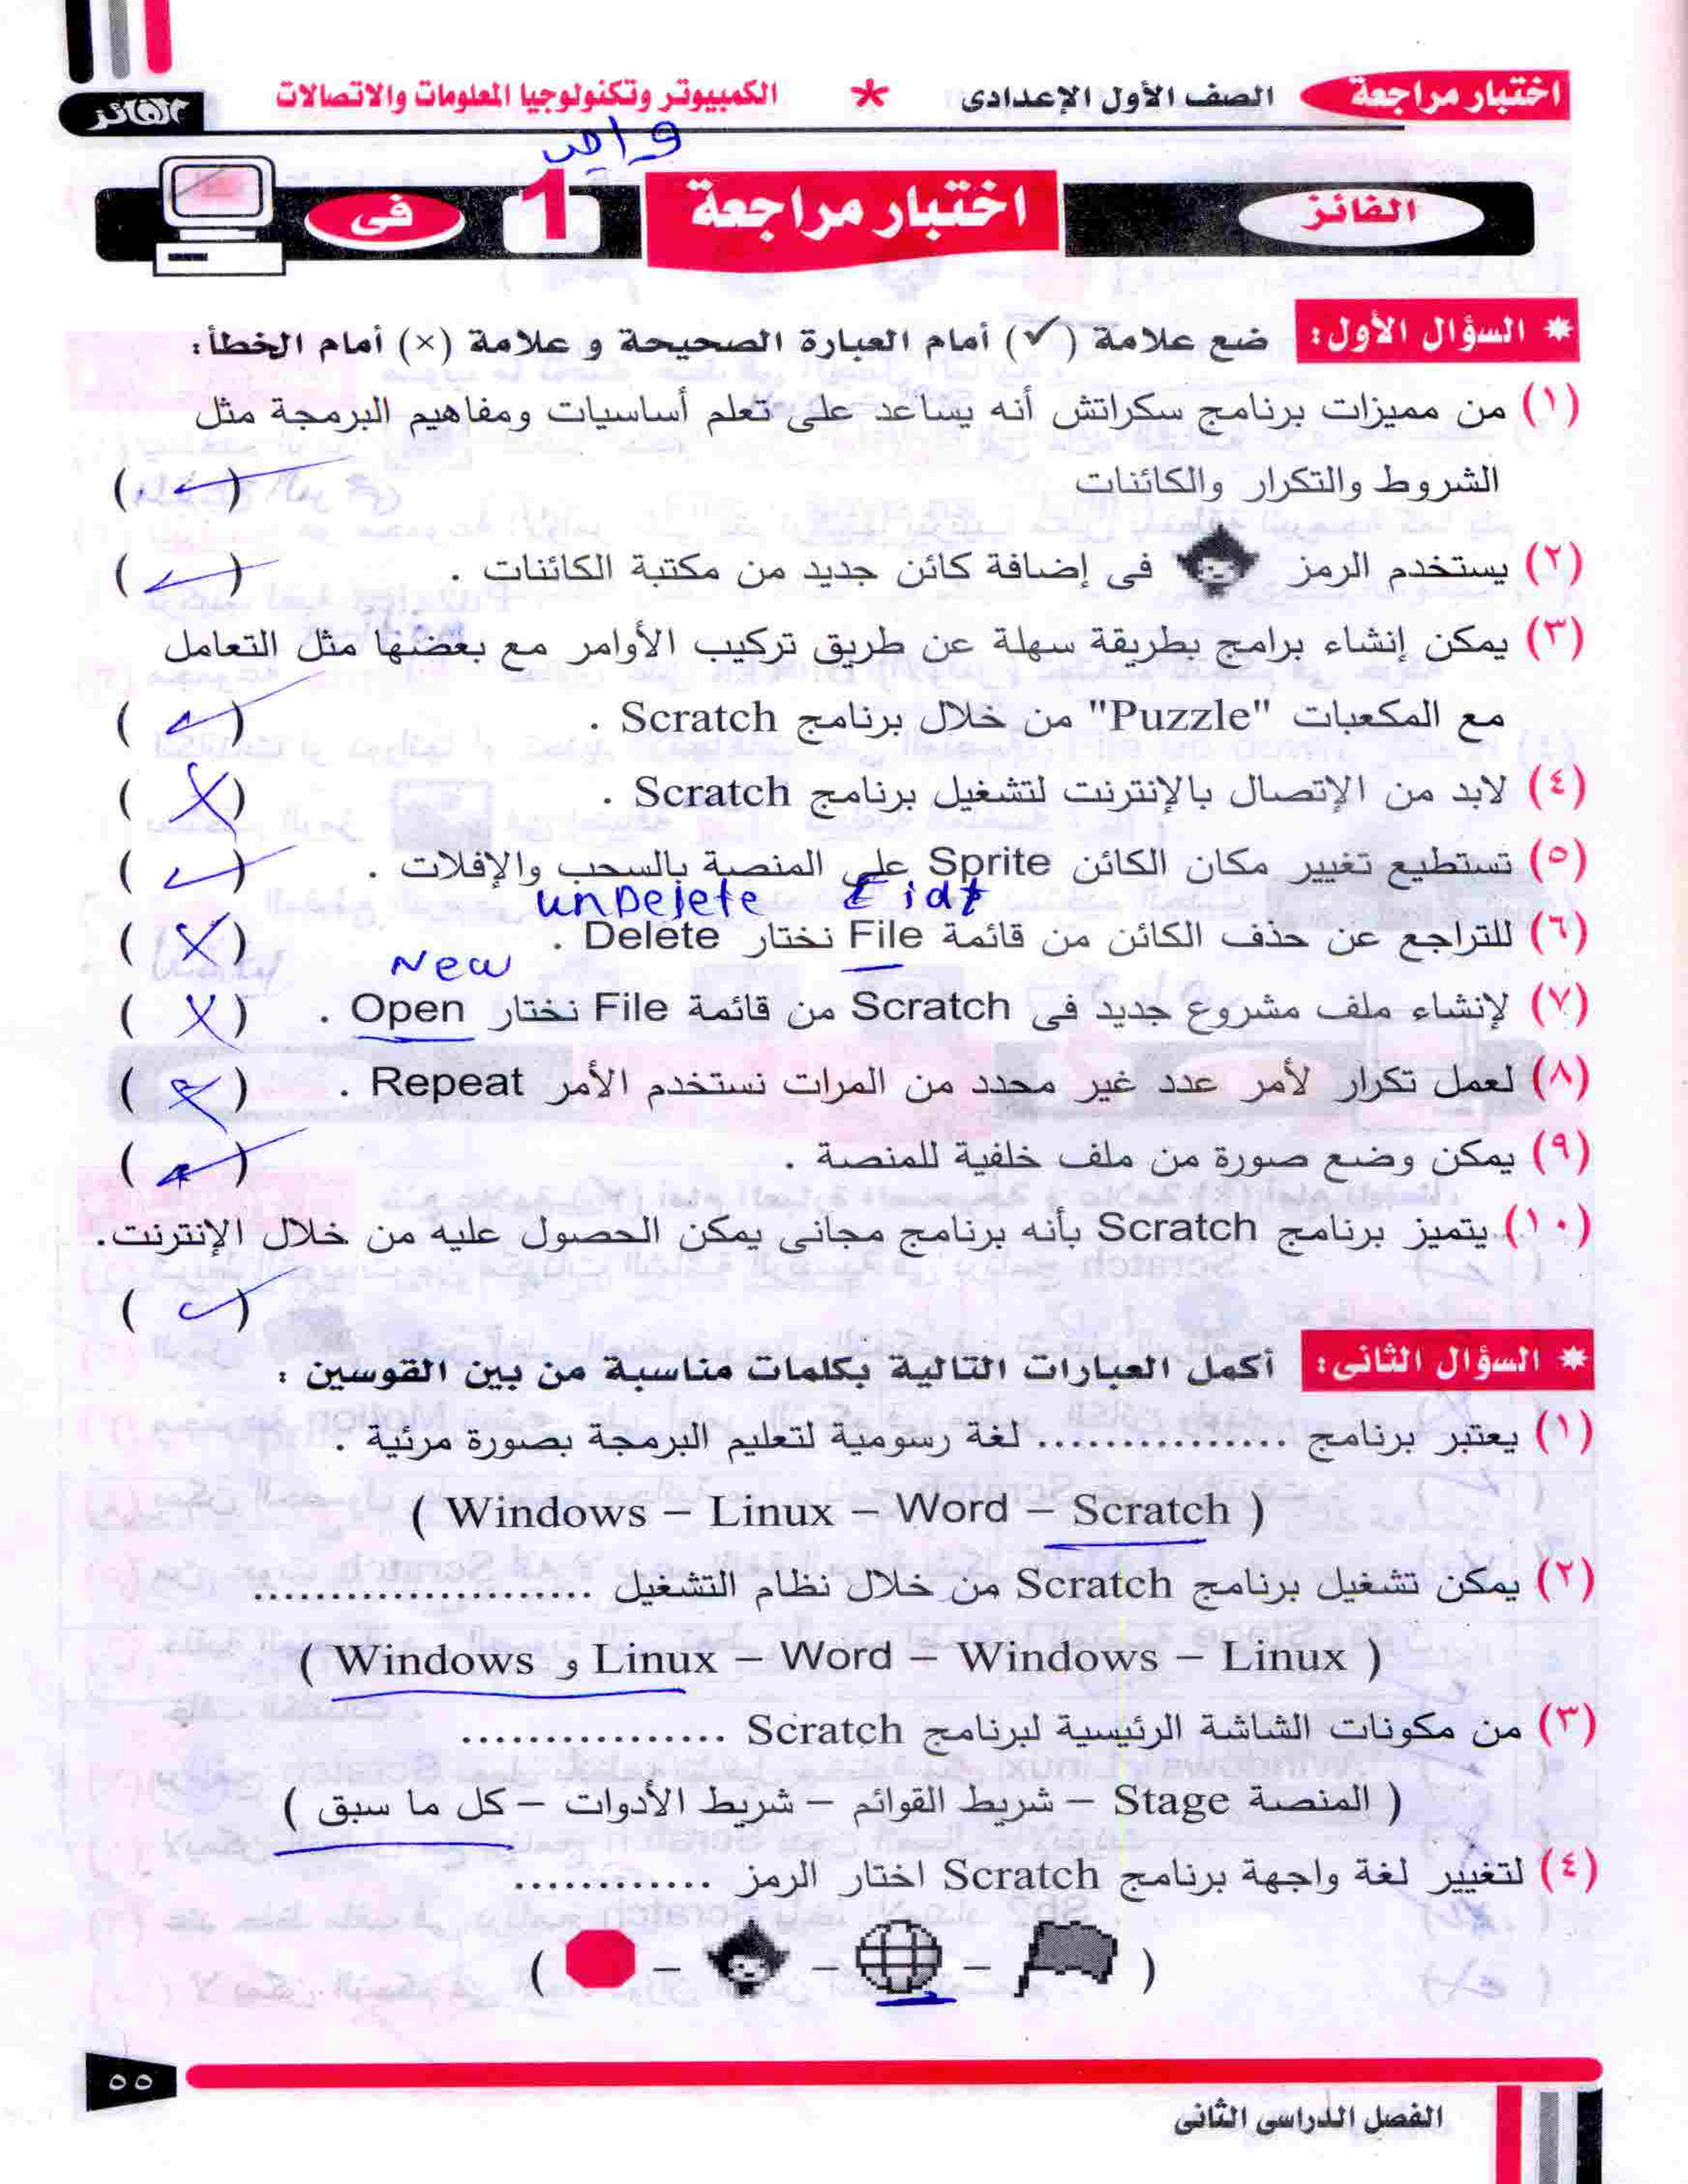 اختبار مراجعة الصف الأول الإعدادى * الكمبيوتر وتكنولوجيا المعلومات والاتصالات الفائز
واحد
الفائز اختبار مراجعة 1 فى
* السؤال الأول: ضع علامة (✓) أمام العبارة الصحيحة و علامة (×) أمام الخطأ:
(١) من مميزات برنامج سكراتش أنه يساعد على تعلم أساسيات ومفاهيم البرمجة مثل
الشروط والتكرار والكائنات (✓)
(٢) يستخدم الرمز فى إضافة كائن جديد من مكتبة الكائنات . (✓)
(٣) يمكن إنشاء برامج بطريقة سهلة عن طريق تركيب الأوامر مع بعضها مثل التعامل
مع المكعبات "Puzzle" من خلال برنامج Scratch . (✓)
(٤) لابد من الإتصال بالإنترنت لتشغيل برنامج Scratch . (X)
(٥) تستطيع تغيير مكان الكائن Sprite على المنصة بالسحب والإفلات . (✓)
Eidt unDelete
(٦) للتراجع عن حذف الكائن من قائمة File نختار Delete . (X)
New
(٧) لإنشاء ملف مشروع جديد فى Scratch من قائمة File نختار Open . (X)
(٨) لعمل تكرار لأمر عدد غير محدد من المرات نستخدم الأمر Repeat . (X)
(٩) يمكن وضع صورة من ملف خلفية للمنصة . (✓)
(١٠) يتميز برنامج Scratch بأنه برنامج مجانى يمكن الحصول عليه من خلال الإنترنت.
(✓)
* السؤال الثانى: أكمل العبارات التالية بكلمات مناسبة من بين القوسين :
(١) يعتبر برنامج ................ لغة رسومية لتعليم البرمجة بصورة مرئية .
( Windows – Linux – Word – Scratch )
(٢) يمكن تشغيل برنامج Scratch من خلال نظام التشغيل ......................
( Windows و Linux – Word – Windows – Linux )
(٣) من مكونات الشاشة الرئيسية لبرنامج Scratch .................
( المنصة Stage – شريط القوائم – شريط الأدوات – كل ما سبق )
(٤) لتغيير لغة واجهة برنامج Scratch اختار الرمز .............
( – – – )
٥٥
الفصل الدراسى الثانى